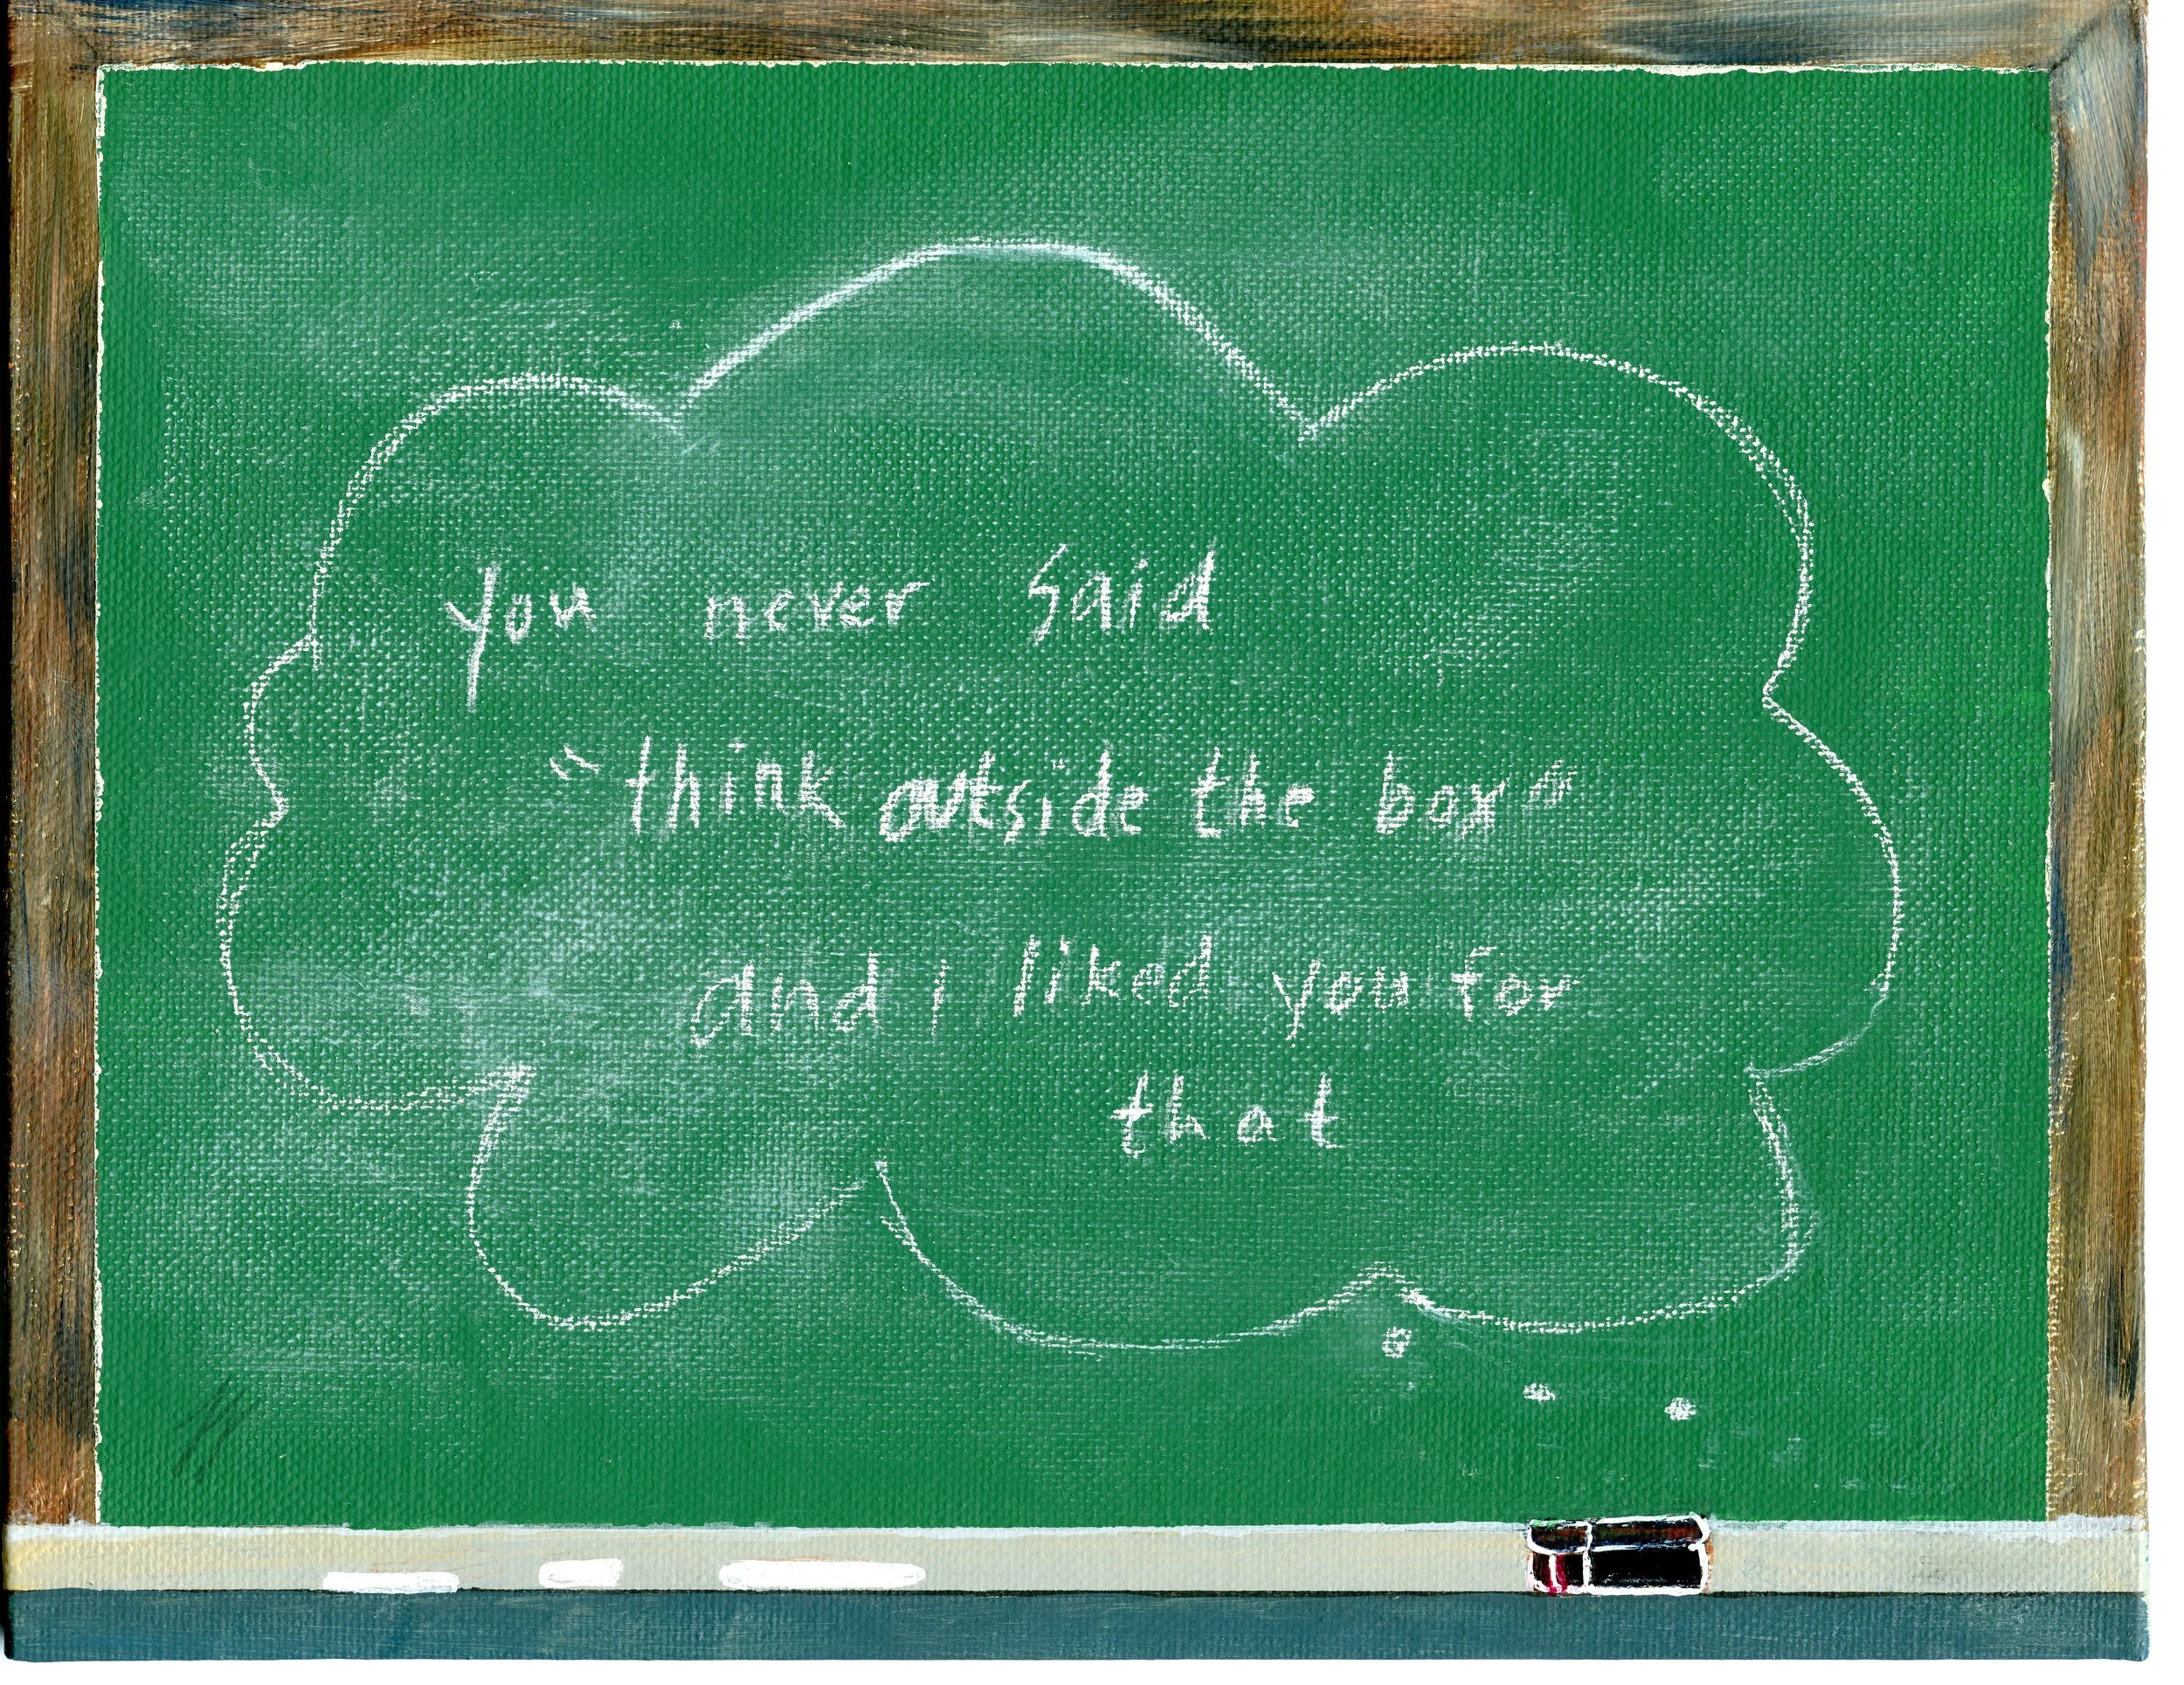 you never said
"think outside the box"
and I liked you for
that